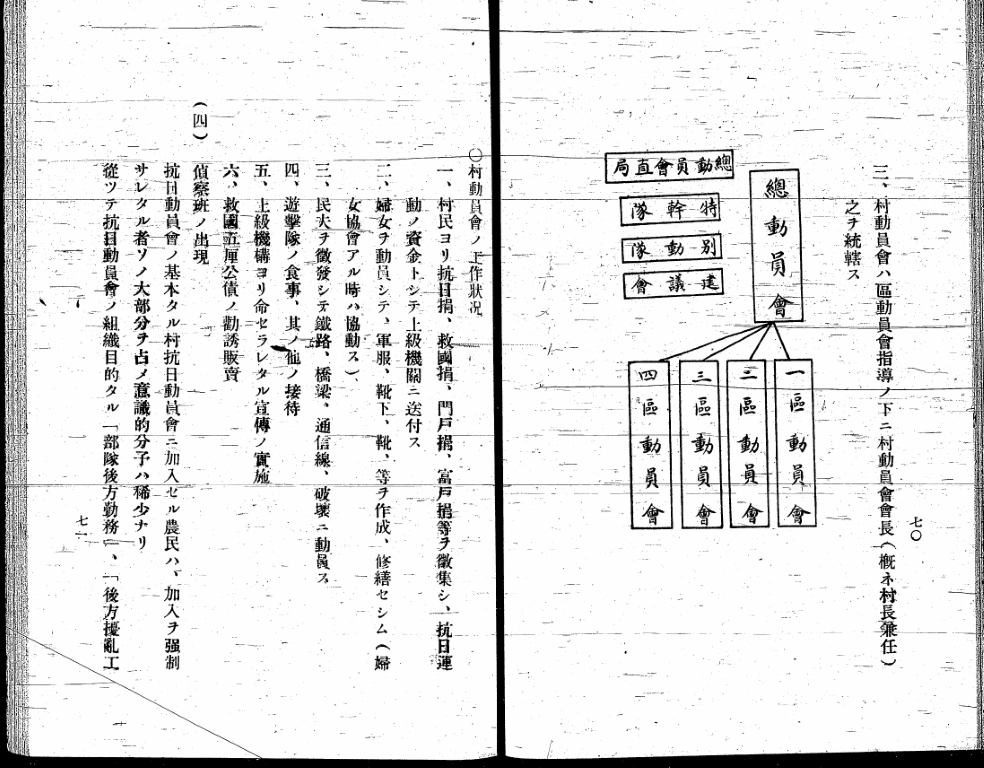 三、村動員會ハ區動員會指導ノ下ニ村動員會會長(概ネ村長兼任)
之ヲ統轄ス
總動員會
總動員會直局
特幹隊
別動隊
建議會
一區動員會
二區動員會
三區動員會
四區動員會
七〇
〇村動員會ノ工作狀況
一、村民ヨリ抗日捐、救國捐、門戸捐、富戸捐等ヲ徵集シ、抗日運
動ノ資金トシテ上級機關ニ送付ス
二、婦女ヲ動員シテ、軍服、靴下、靴、等ヲ作成、修繕セシム(婦
女協會アル時ハ協動ス)
三、民夫ヲ徵發シテ鐵路、橋梁、通信線、破壞ニ動員ス
四、遊擊隊ノ食事、其ノ他ノ接待
五、上級機構ヨリ命セラレタル宣傳ノ實施
六、救國五厘公債ノ勸誘販賣
(四)
偵察班ノ出現
抗日動員會ノ基本タル村抗日動員會ニ加入セル農民ハ、加入ヲ强制
サレタル者ソノ大部分ヲ占メ意識的分子ハ稀少ナリ
從ツテ抗日動員會ノ組織目的タル「部隊後方勤務」、「後方擾亂工
七一